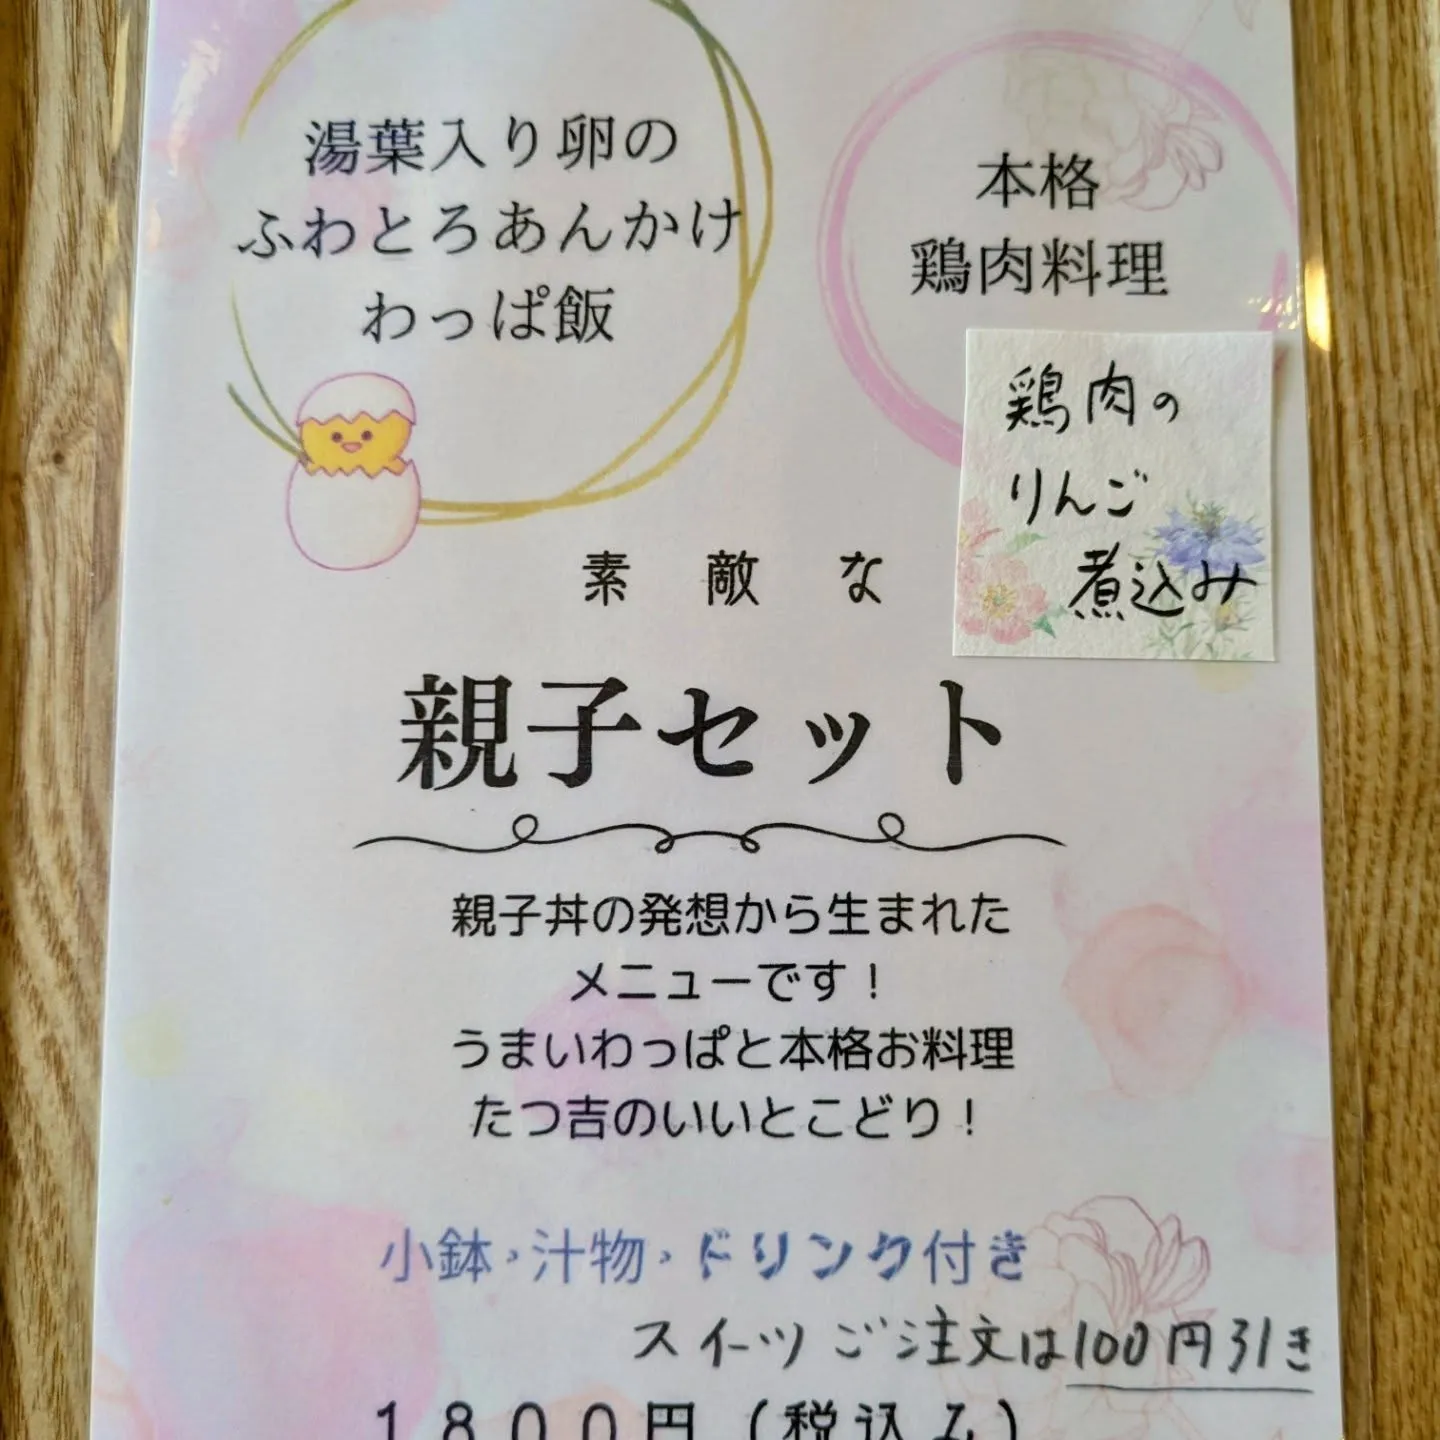 湯葉入り卵の
ふわとろあんかけ
わっぱ飯
本格
鶏肉料理
鶏肉の
りんご
煮込み
素敵な
親子セット
親子丼の発想から生まれた
メニューです！
うまいわっぱと本格お料理
たつ吉のいいとこどり！
小鉢・汁物・ドリンク付き
スイーツご注文は100円引き
1800円（税込み）